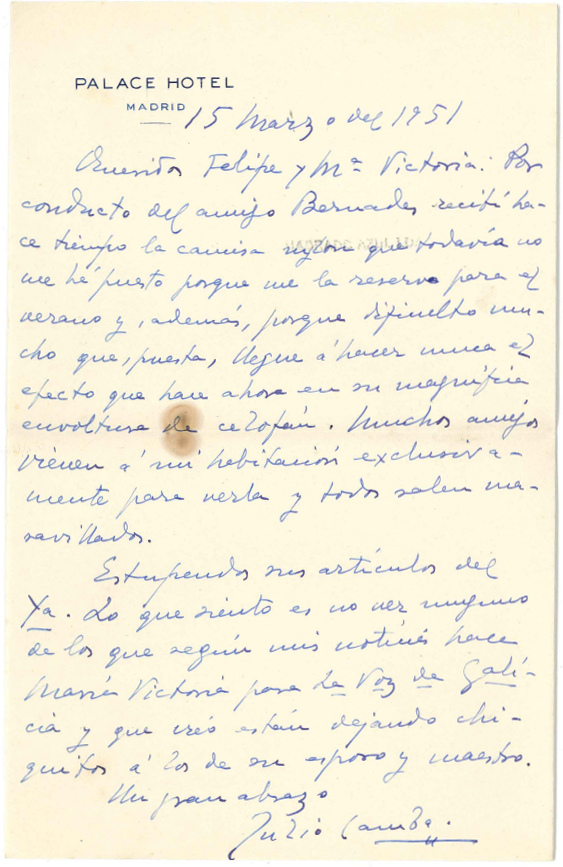 PALACE HOTEL
MADRID
15 Marzo del 1951
Queridos Felipe y Mª Victoria: Por
conducto del amigo Bernades recibí ha-
ce tiempo la camisa nylon que todavía no
me hé puesto porque me la reservo para el
verano y, además, porque dificulto mu-
cho que, puesta, llegue á hacer nunca el
efecto que hace ahora en su magnífica
envoltura de celofán. Muchos amigos
vienen á mi habitación exclusiva-
mente para verla y todos salen ma-
ravillados.
Estupendos sus artículos del
Ya. Lo que siento es no ver ninguno
de los que según mis noticias hace
María Victoria para La Voz de Gali-
cia y que creo están dejando chi-
quitos á los de su esposo y maestro.
Un gran abrazo
Julio Camba.